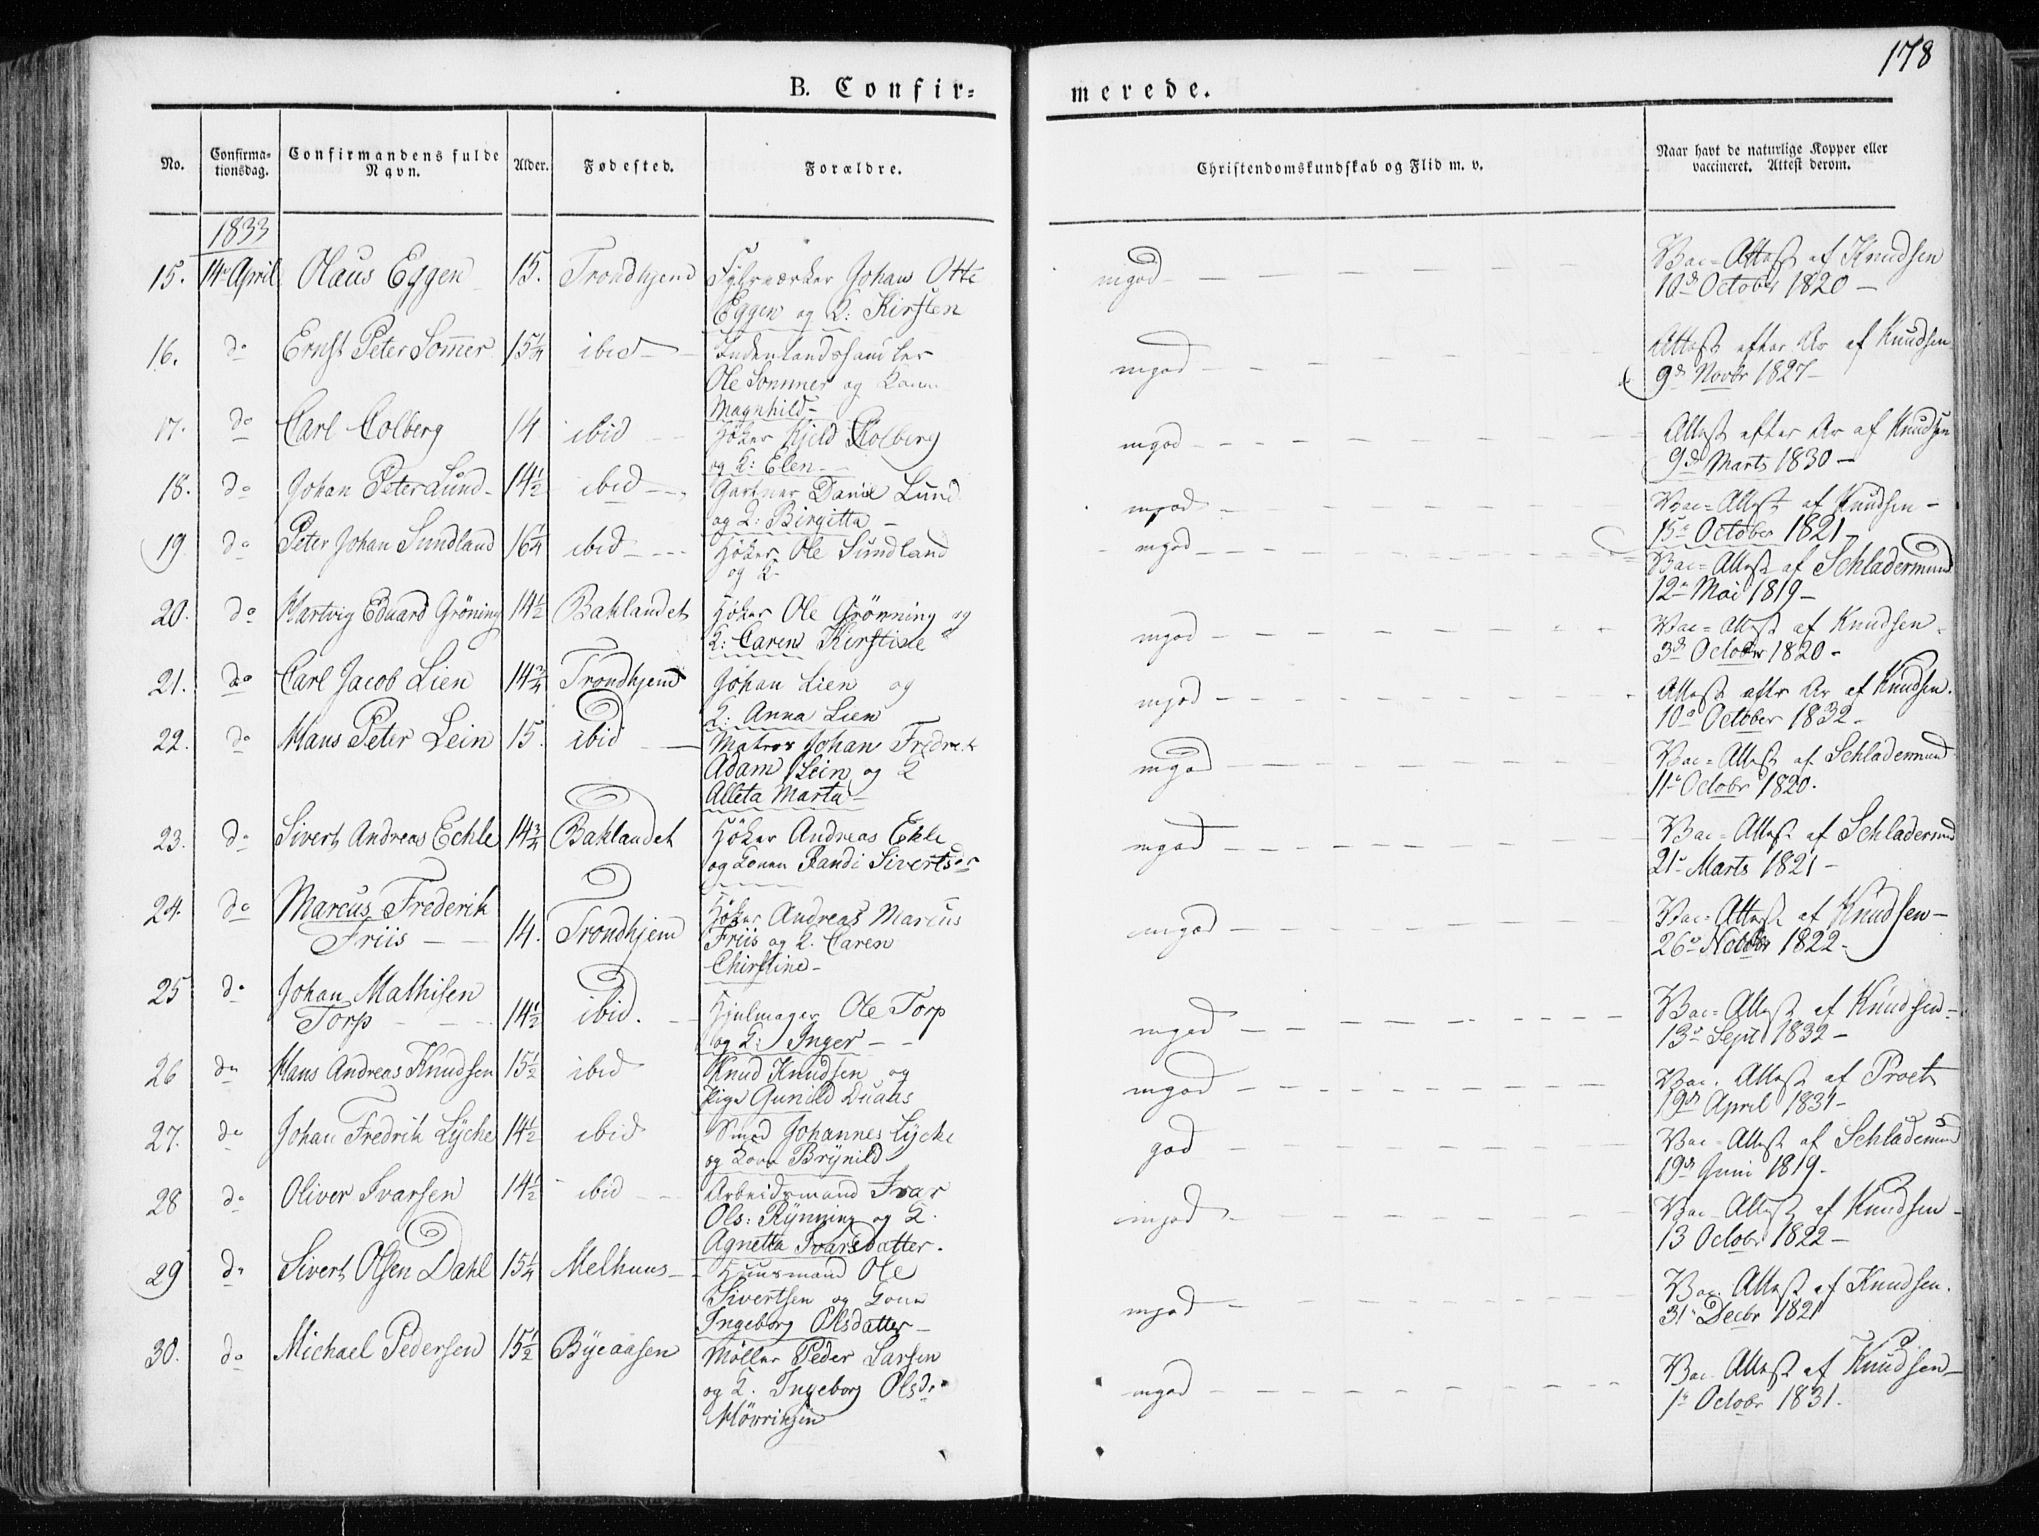 178
B. Confir=
merede.
No.
Confirma=
tionsdag.
Confirmandens fulde
Navn.
Alder.
Fødested.
Forældre.
Christendomskundskab og Flid m. v.
Naar havt de naturlige Kopper eller
vaccineret. Attest derom.
1833
15. 14 April Olaus Eggen 15. Trondhjem Johan Otte mgod Vac=Attest af Knudsen
Eggen og K: Kirsten 10d October 1820 —
16. do Ernst Peter Somer 15¼ ibid Indenlandshandler mgod Attest efter Ar af Knudsen
Ole Sommer og Kone 9d Novbr 1827 —
Magnhild —
17. do Carl Colberg 14 ibid Høker Kjeld Kolberg mgod Attest efter Ar af Knudsen
og K: Elen — 9d Marts 1830 —
18. do Johan Peter Lund 14½ ibid Gartner Daniel Lund mgod Vac=Attest af Knudsen —
og K: Birgitta — 15 October 1821
19 do Peter Johan Sundland 16¼ ibid Høker Ole Sundland mgod Vac=Attest af Schlademund
og K 12 Mai 1819 —
20. do Hartvig Eduard Gröning 14½ Baklandet Høker Ole Grönning og mgod Vac=Attest af Knudsen
K: Caren Kirstine 3d October 1820 —
21. do Carl Jacob Lien 14¾ Trondhjem Johan Lien og mgod Attest eftr Ar af Knudsen.
K: Anna Lien 10 October 1832 —
22. do Hans Peter Lein 15. ibid Matros Johan Fredrik mgod Vac=Attest af Schlademund
Adam Lein og K 11 Octobr 1820.
Alleta Marta —
23. do Sivert Andreas Echle 14¾ Baklandet Høker Andreas Ekle mgod Vac=Attest af Schlademund
og Konen Randi Sivertsdr 21 Marts 1821 —
24. do Marcus Frederik Høker Andreas Marcus Vac=Attest af Knudsen —
Friis 14. Trondhjem Friis og K. Caren mgod 26 1822 —
Chirstine —
25 do Johan Mathisen Vac=Attest af Knudsen —
Torp 14½ ibid. Hjulmager Ole Torp mgod 13 Sept 1832 —
og K: Inger —
26 do Hans Andreas Knudsen 15½ ibid Knud Knudsen og mgod Vac. Attest af
Pige Gunild 19d April 1831 —
27. do Johan Fredrik Lÿche 14½ ibid Smed Johannes Lÿche god Vac=Attest af Schlademund
og Kone Brÿnild 19d Juni 1819 —
28 do Oliver Ivarsen 14½ ibid Arbeidsmand Ivar mgod Vac=Attest af Knudsen —
Ols: Rÿnning og K. 13 Octobr 1822 —
Agnetta Ivarsdatter.
29 do Sivert Olsen Dahl 15¼ Melhuus Huusmand Ole mgod Vac. Attest af Knudsen.
Sivertsen og Kone 31 Decbr 1821
Ingeborg Olsdatter —
30. do Michael Pedersen 15½ Bÿeaasen Møller Peder Larsen mgod Vac. Attest af Knudsen —
og K. Ingeborg Olsdr 1 Octobr 1831.